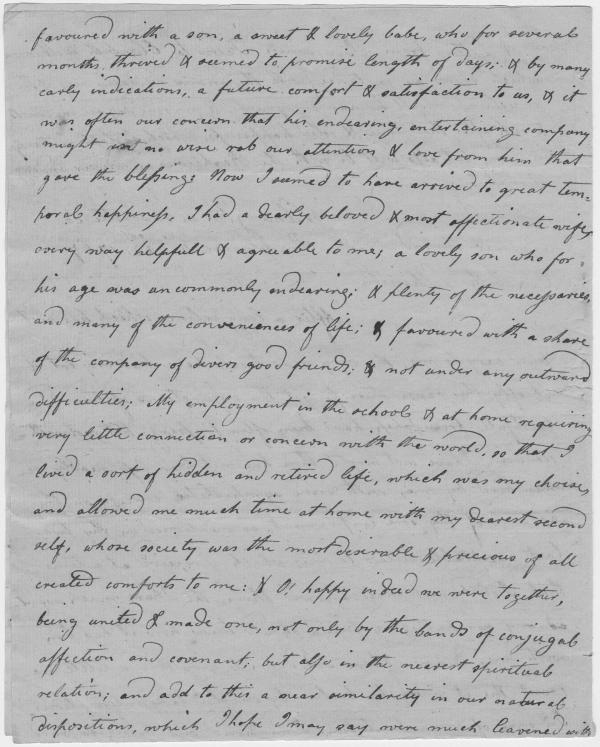 favoured with a son, a sweet & lovely babe, who for several
months, thrived & seemed to promise length of days; & by many
early indications, a future comfort & satisfaction to us, & it
was often our concern that his endearing, entertaining company
might in no wise rob our attention & love from him that
gave the blessing: Now I seemed to have arrived to great tem=
poral happiness, I had a dearly beloved & most affectionate wife,
every way helpfull & agreeable to me; a lovely son who for
his age was uncommonly endearing; & plenty of the necessaries,
and many of the conveniences of life; & favoured with a share
of the company of divers good friends; & not under any outward
difficulties; My employment in the school & at home requiring
very little connection or concern with the world, so that I
lived a sort of hidden and retired life, which was my choise,
and allowed me much time at home with my dearest second
self, whose society was the most desirable & precious of all
created comforts to me: & O! happy indeed we were together,
being united & made one, not only by the bands of conjugal
affection and covenant; but also in the nearest spiritual
relation; and add to this a near similarity in our natural
dispositions, which I hope I may say were much leavened with